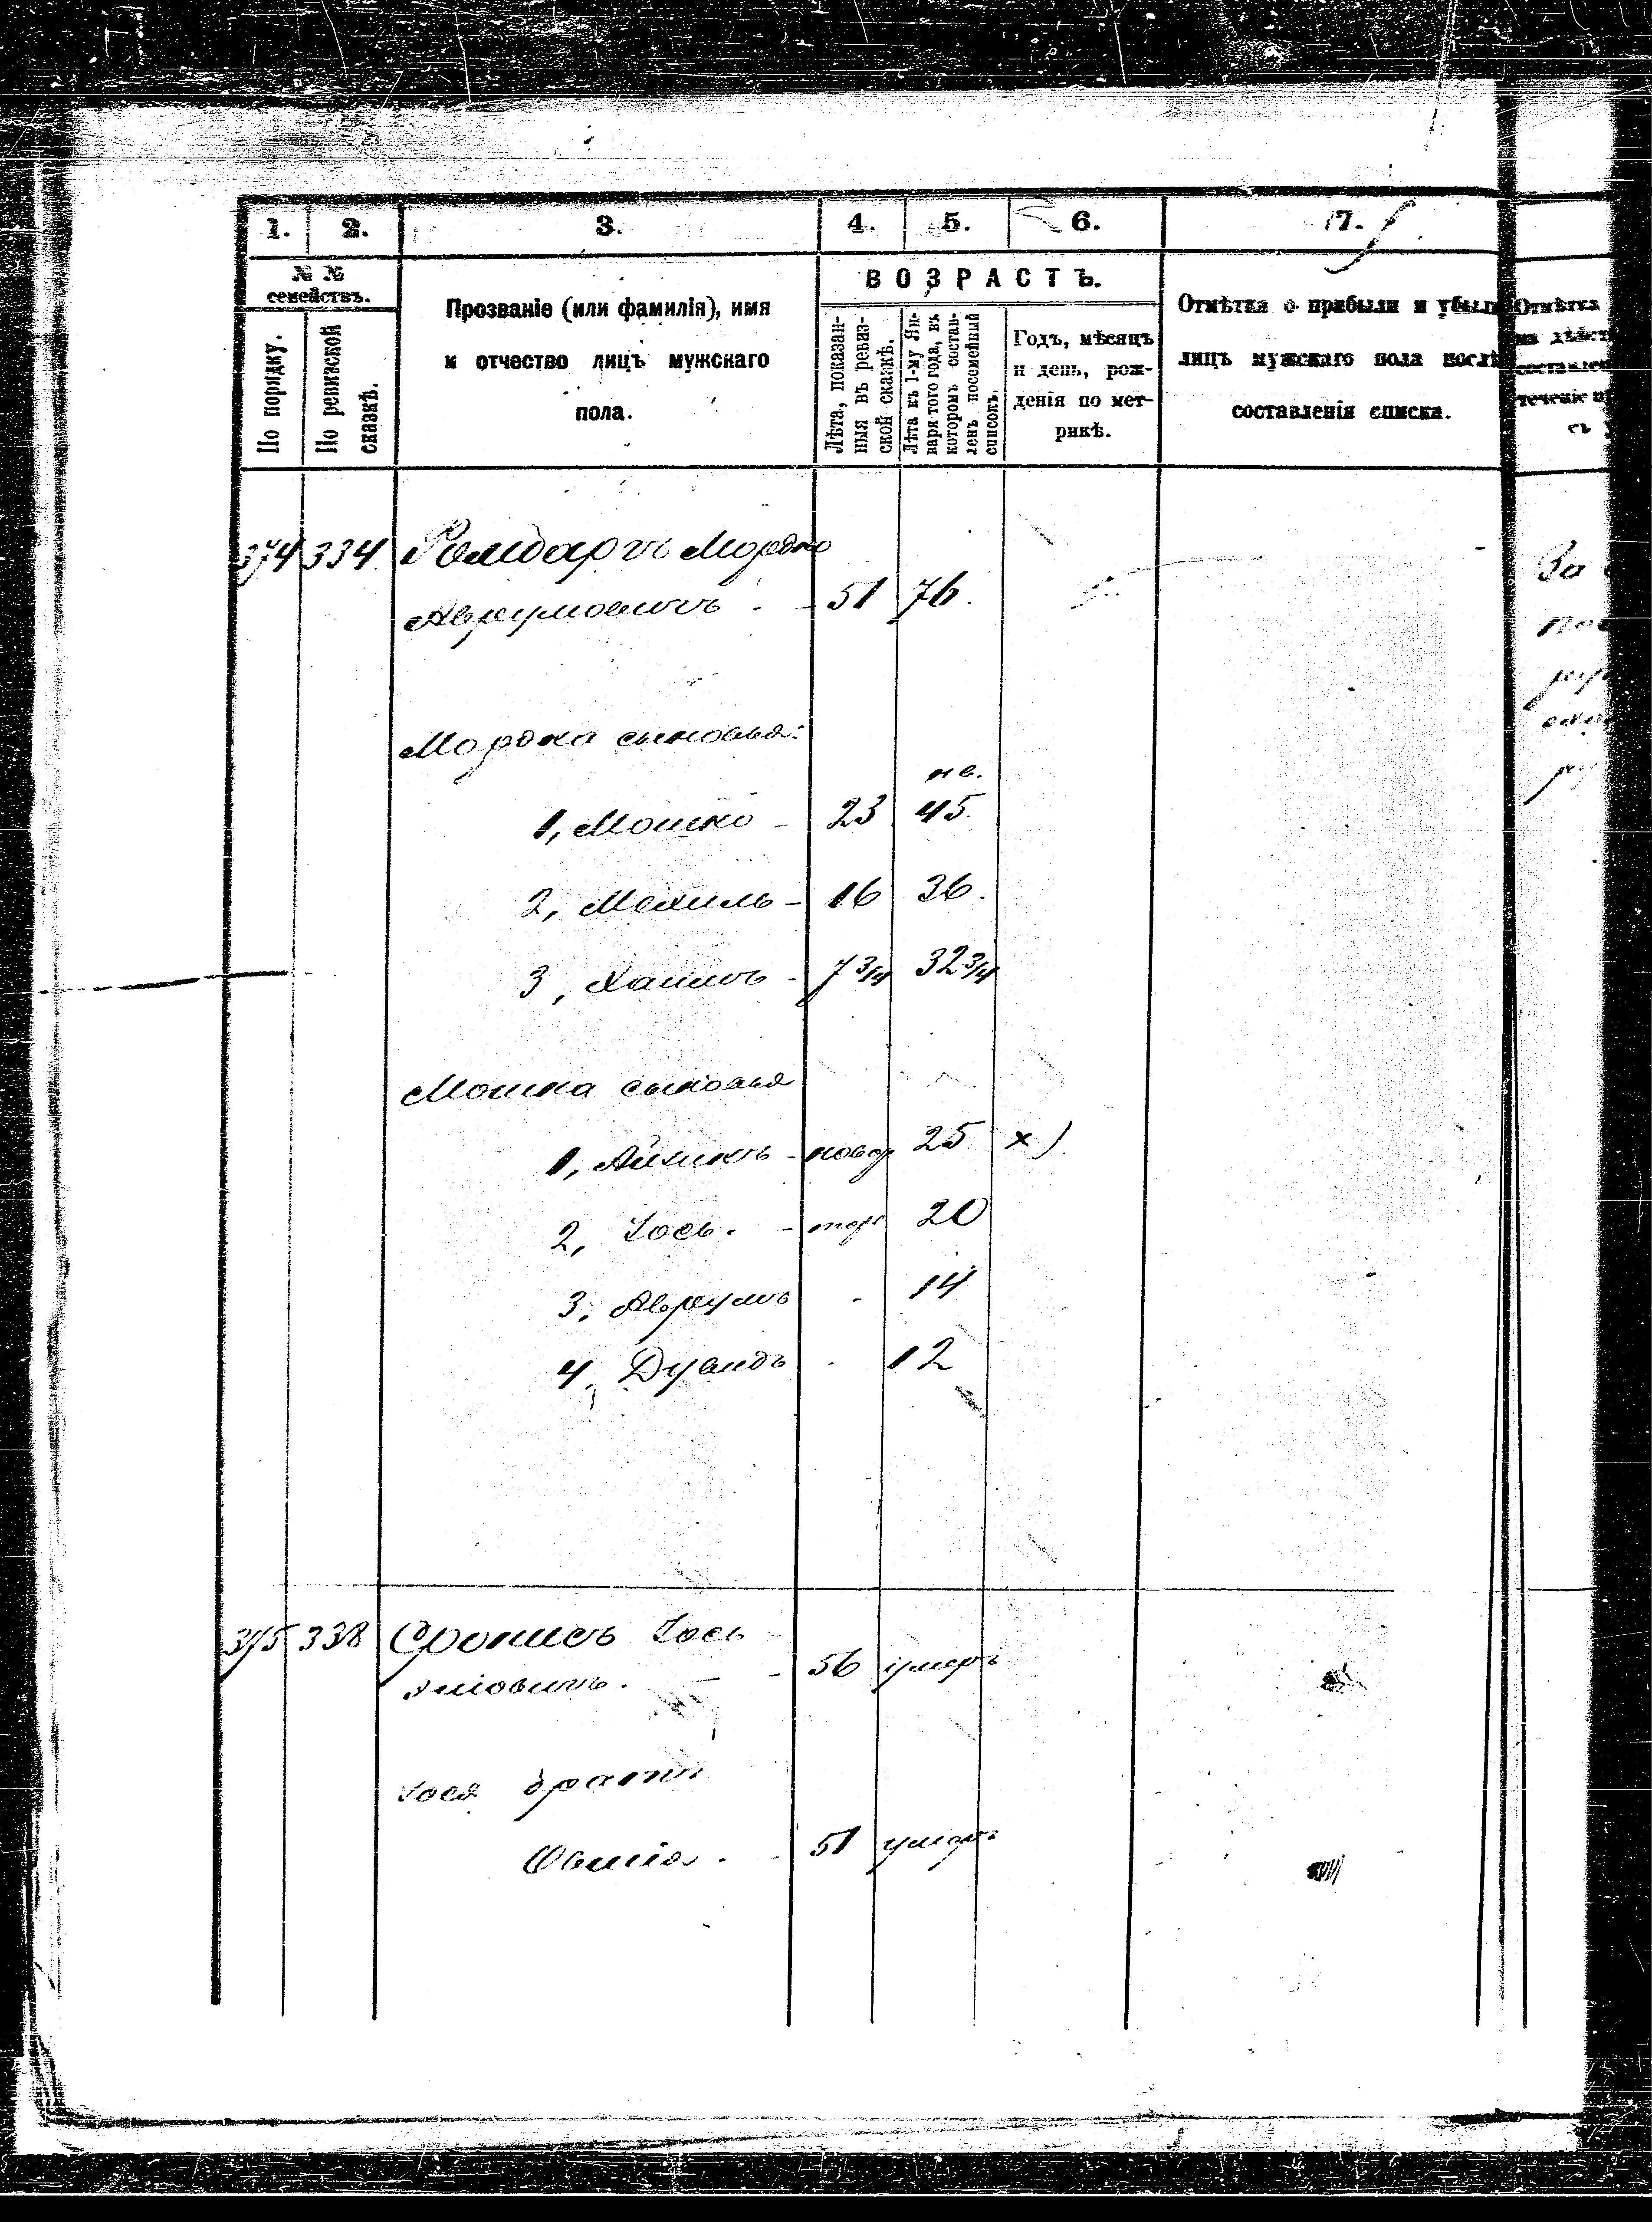 1. 2. 3. 4. 5. 6. 7.
№ №
семействъ.
По порядку.
По ревизской
сказкѣ.
Прозваніе (или фамилія), имя
и отчество лицъ мужскаго
пола.
ВОЗРАСТЪ.
Лѣта, показан-
ныя въ ревиз-
ской сказкѣ.
Лѣта къ 1-му Ян-
варя того года, въ
которомъ состав-
ленъ посемейный
списокъ.
Годъ, мѣсяцъ
и день, рож-
денія по мет-
рикѣ.
Отмѣтка о прибыли и убыли
лицъ мужскаго пола послѣ
составленія списка.
Отмѣтка
374 334 Мордко
Аврумовичъ . - 51 76.
Мордка сыновья:
1, Мошко - 23 45.
2, Мехиль - 16 36.
3, Хаимъ - 7 3/4 32 3/4
Мошка сыновья
1, Айзикъ - 25 х)
2, Іось. - 20
3, Аврумъ - 14
4, Дувидъ . 12
375 338 Іось
56 умеръ
Іося братъ
Овшія . - 51 умеръ
За